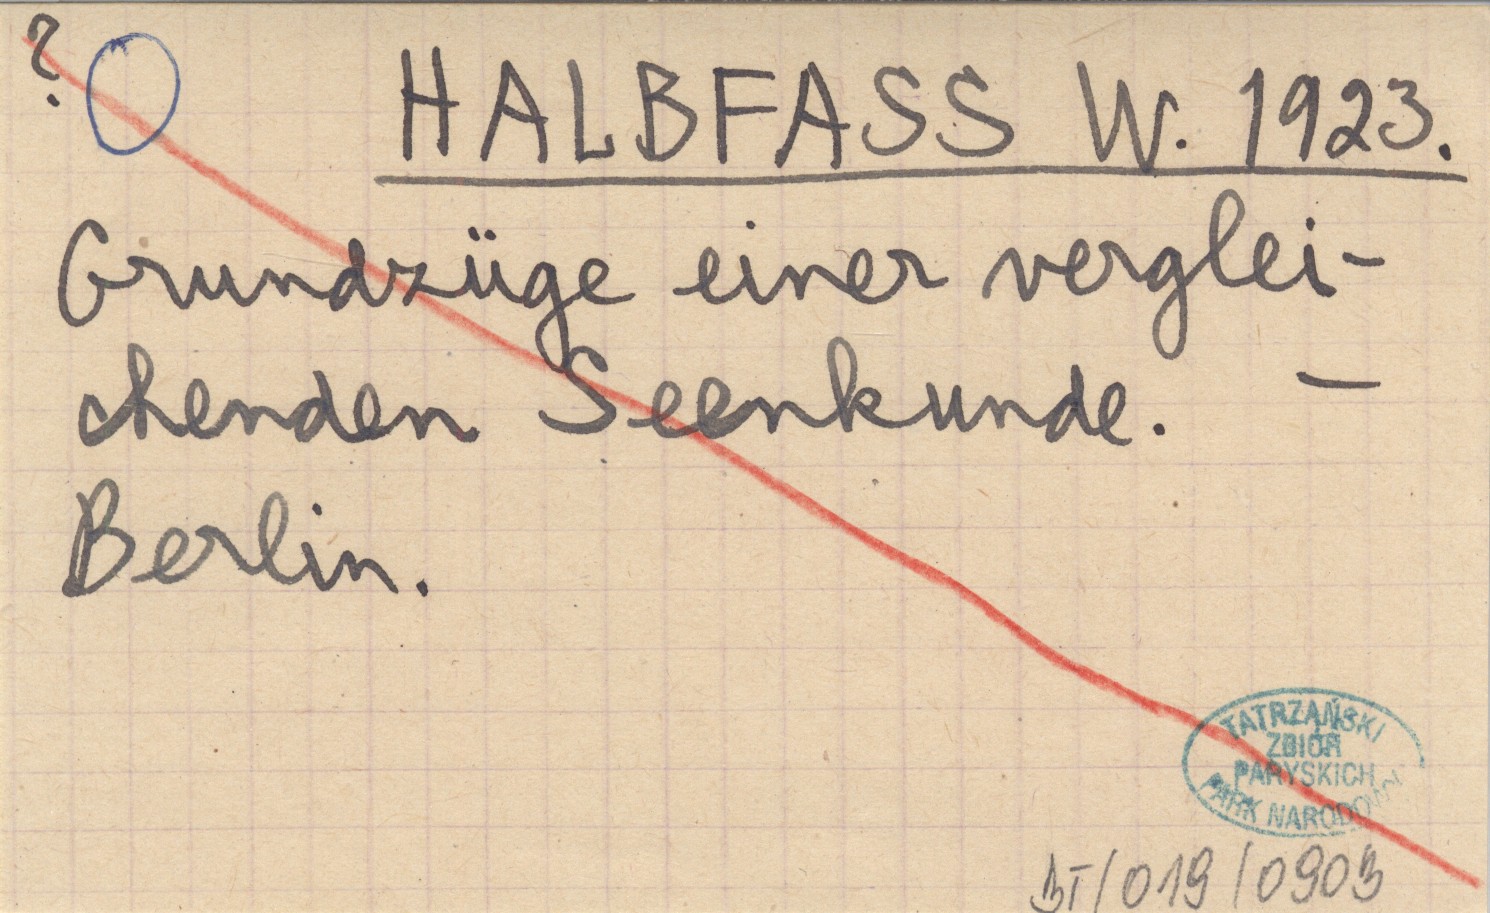 ? HALBFASS W. 1923.
Grundzüge einer verglei-
chenden Seenkunde. –
Berlin.
TATRZAŃSKI
ZBIÓR
PARYSKICH
PARK NARODOWY
BT/019/0903